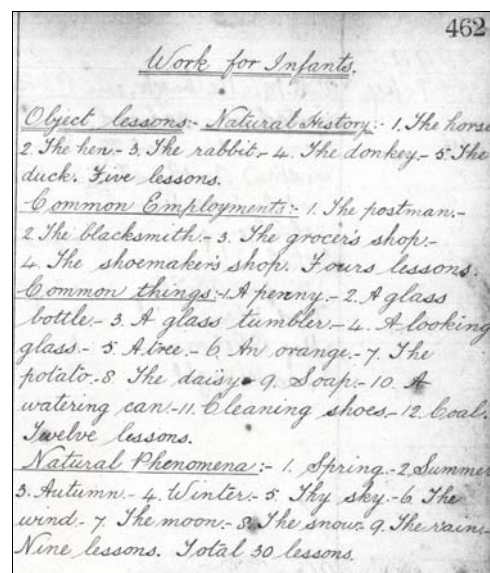 462
Work for Infants.
Object lessons:- Natural History:- 1. The horse
2. The hen.- 3. The rabbit.- 4. The donkey.- 5. The
duck. Five lessons.
Common Employments:- 1. The postman.-
2. The blacksmith.- 3. The grocer's shop.-
4. The shoemaker's shop. Fours lessons.
Common things:- 1. A penny.- 2. A glass
bottle.- 3. A glass tumbler.- 4. A looking
glass.- 5. A tree.- 6. An orange.- 7. The
potato.- 8. The daisy.- 9. Soap.- 10. A
watering can.- 11. Cleaning shoes.- 12. Coal.
Twelve lessons.
Natural Phenomena:- 1. Spring.- 2. Summer
3. Autumn.- 4. Winter.- 5. Thy sky.- 6. The
wind.- 7. The moon.- 8. The snow.- 9. The rain.-
Nine lessons. Total 30 lessons.